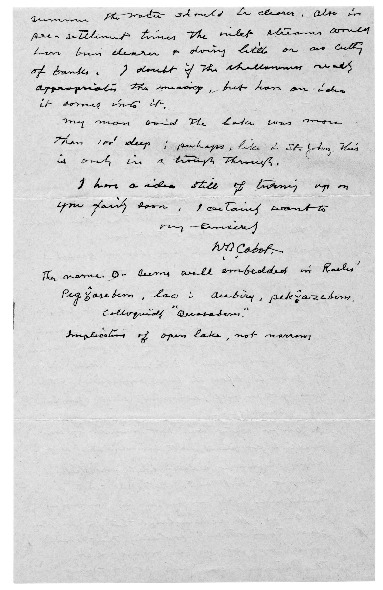 summer the water should be clearer. Also in
pre-settlement times the inlet streams would
have been clearer & doing little or no cutting
of banks. I doubt if the shallowness really
appropriates the meaning, but have an idea
it comes into it.
My man said the lake was more
than 100' deep; perhaps, like L. St. John this
is only in a trough through.
I have a idea still of turning up on
you fairly soon. I certainly want to
very sincerely
W B Cabot
The name D- seems well embedded in
lac:
colloquially
Implication of open lake, not narrows